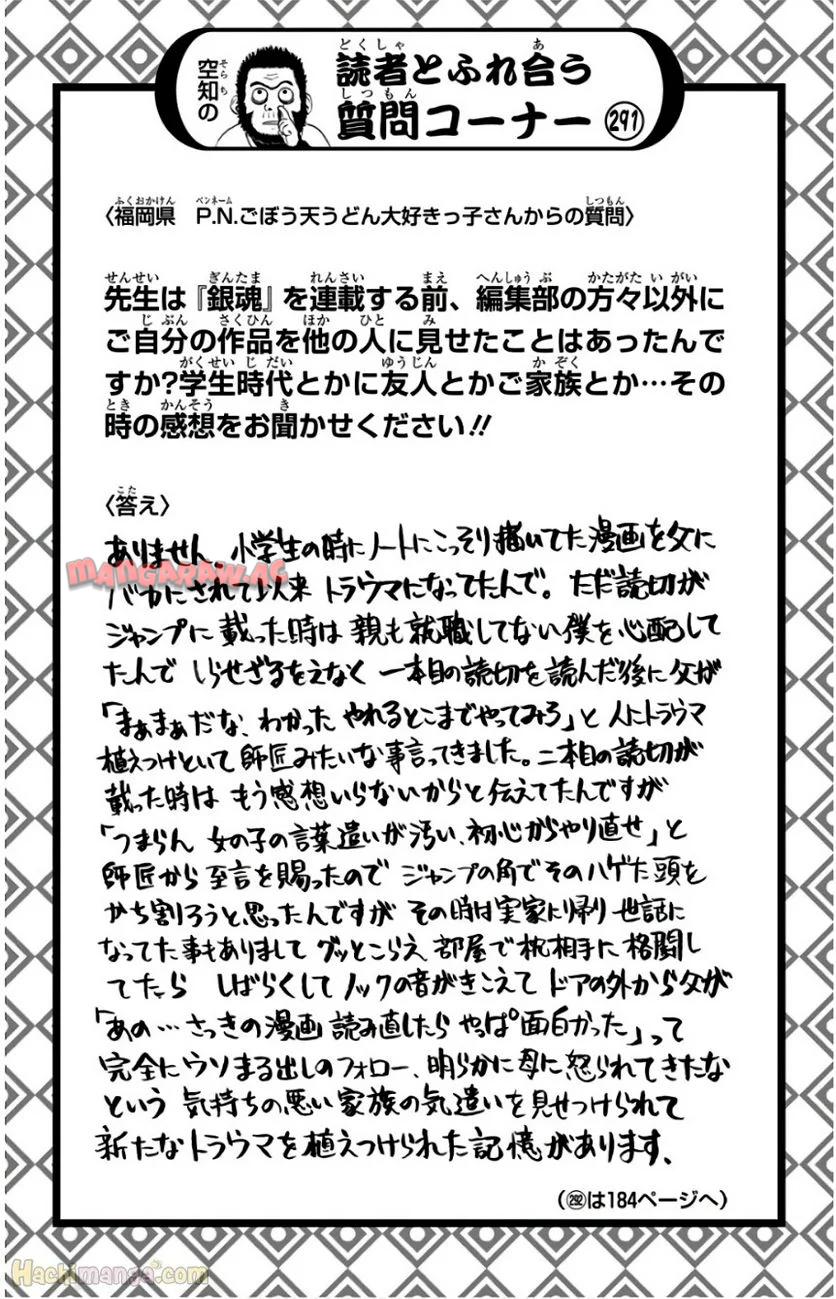 空知の
読者とふれ合う
質問コーナー 291
〈福岡県 P.N.ごぼう天うどん大好きっ子さんからの質問〉
先生は『銀魂』を連載する前、編集部の方々以外に
ご自分の作品を他の人に見せたことはあったんで
すか?学生時代とかに友人とかご家族とか…その
時の感想をお聞かせください!!
〈答え〉
ありません 小学生の時にノートにこっそり描いてた漫画を父に
バカにされて以来 トラウマになってたんで。ただ読切が
ジャンプに載った時は親も就職してない僕を心配して
たんで しらせざるをえなく 一本目の読切を読んだ後に父が
「まぁまぁだな、わかった やれるとこまでやってみろ」と 人にトラウマ
植えつけといて師匠みたいな事言ってきました。二本目の読切が
載った時は もう感想いらないからと伝えてたんですが
「つまらん 女の子の言葉遣いが汚い、初心からやり直せ」と
師匠から至言を賜ったので ジャンプの角でそのハゲた頭を
かち割ろうと思ったんですが その時は実家に帰り世話に
なってた事もありまして グッとこらえ部屋で枕相手に格闘し
てたら しばらくして ノックの音がきこえて ドアの外から父が
「あの…さっきの漫画 読み直したら やっぱ面白かった」って
完全にウソまる出しのフォロー、明らかに母に怒られてきたな
という 気持ちの悪い家族の気遣いを見せつけられて
新たなトラウマを植えつけられた記憶があります、
(292は184ページへ)
MANGARAW.AC
Hachimanga.com